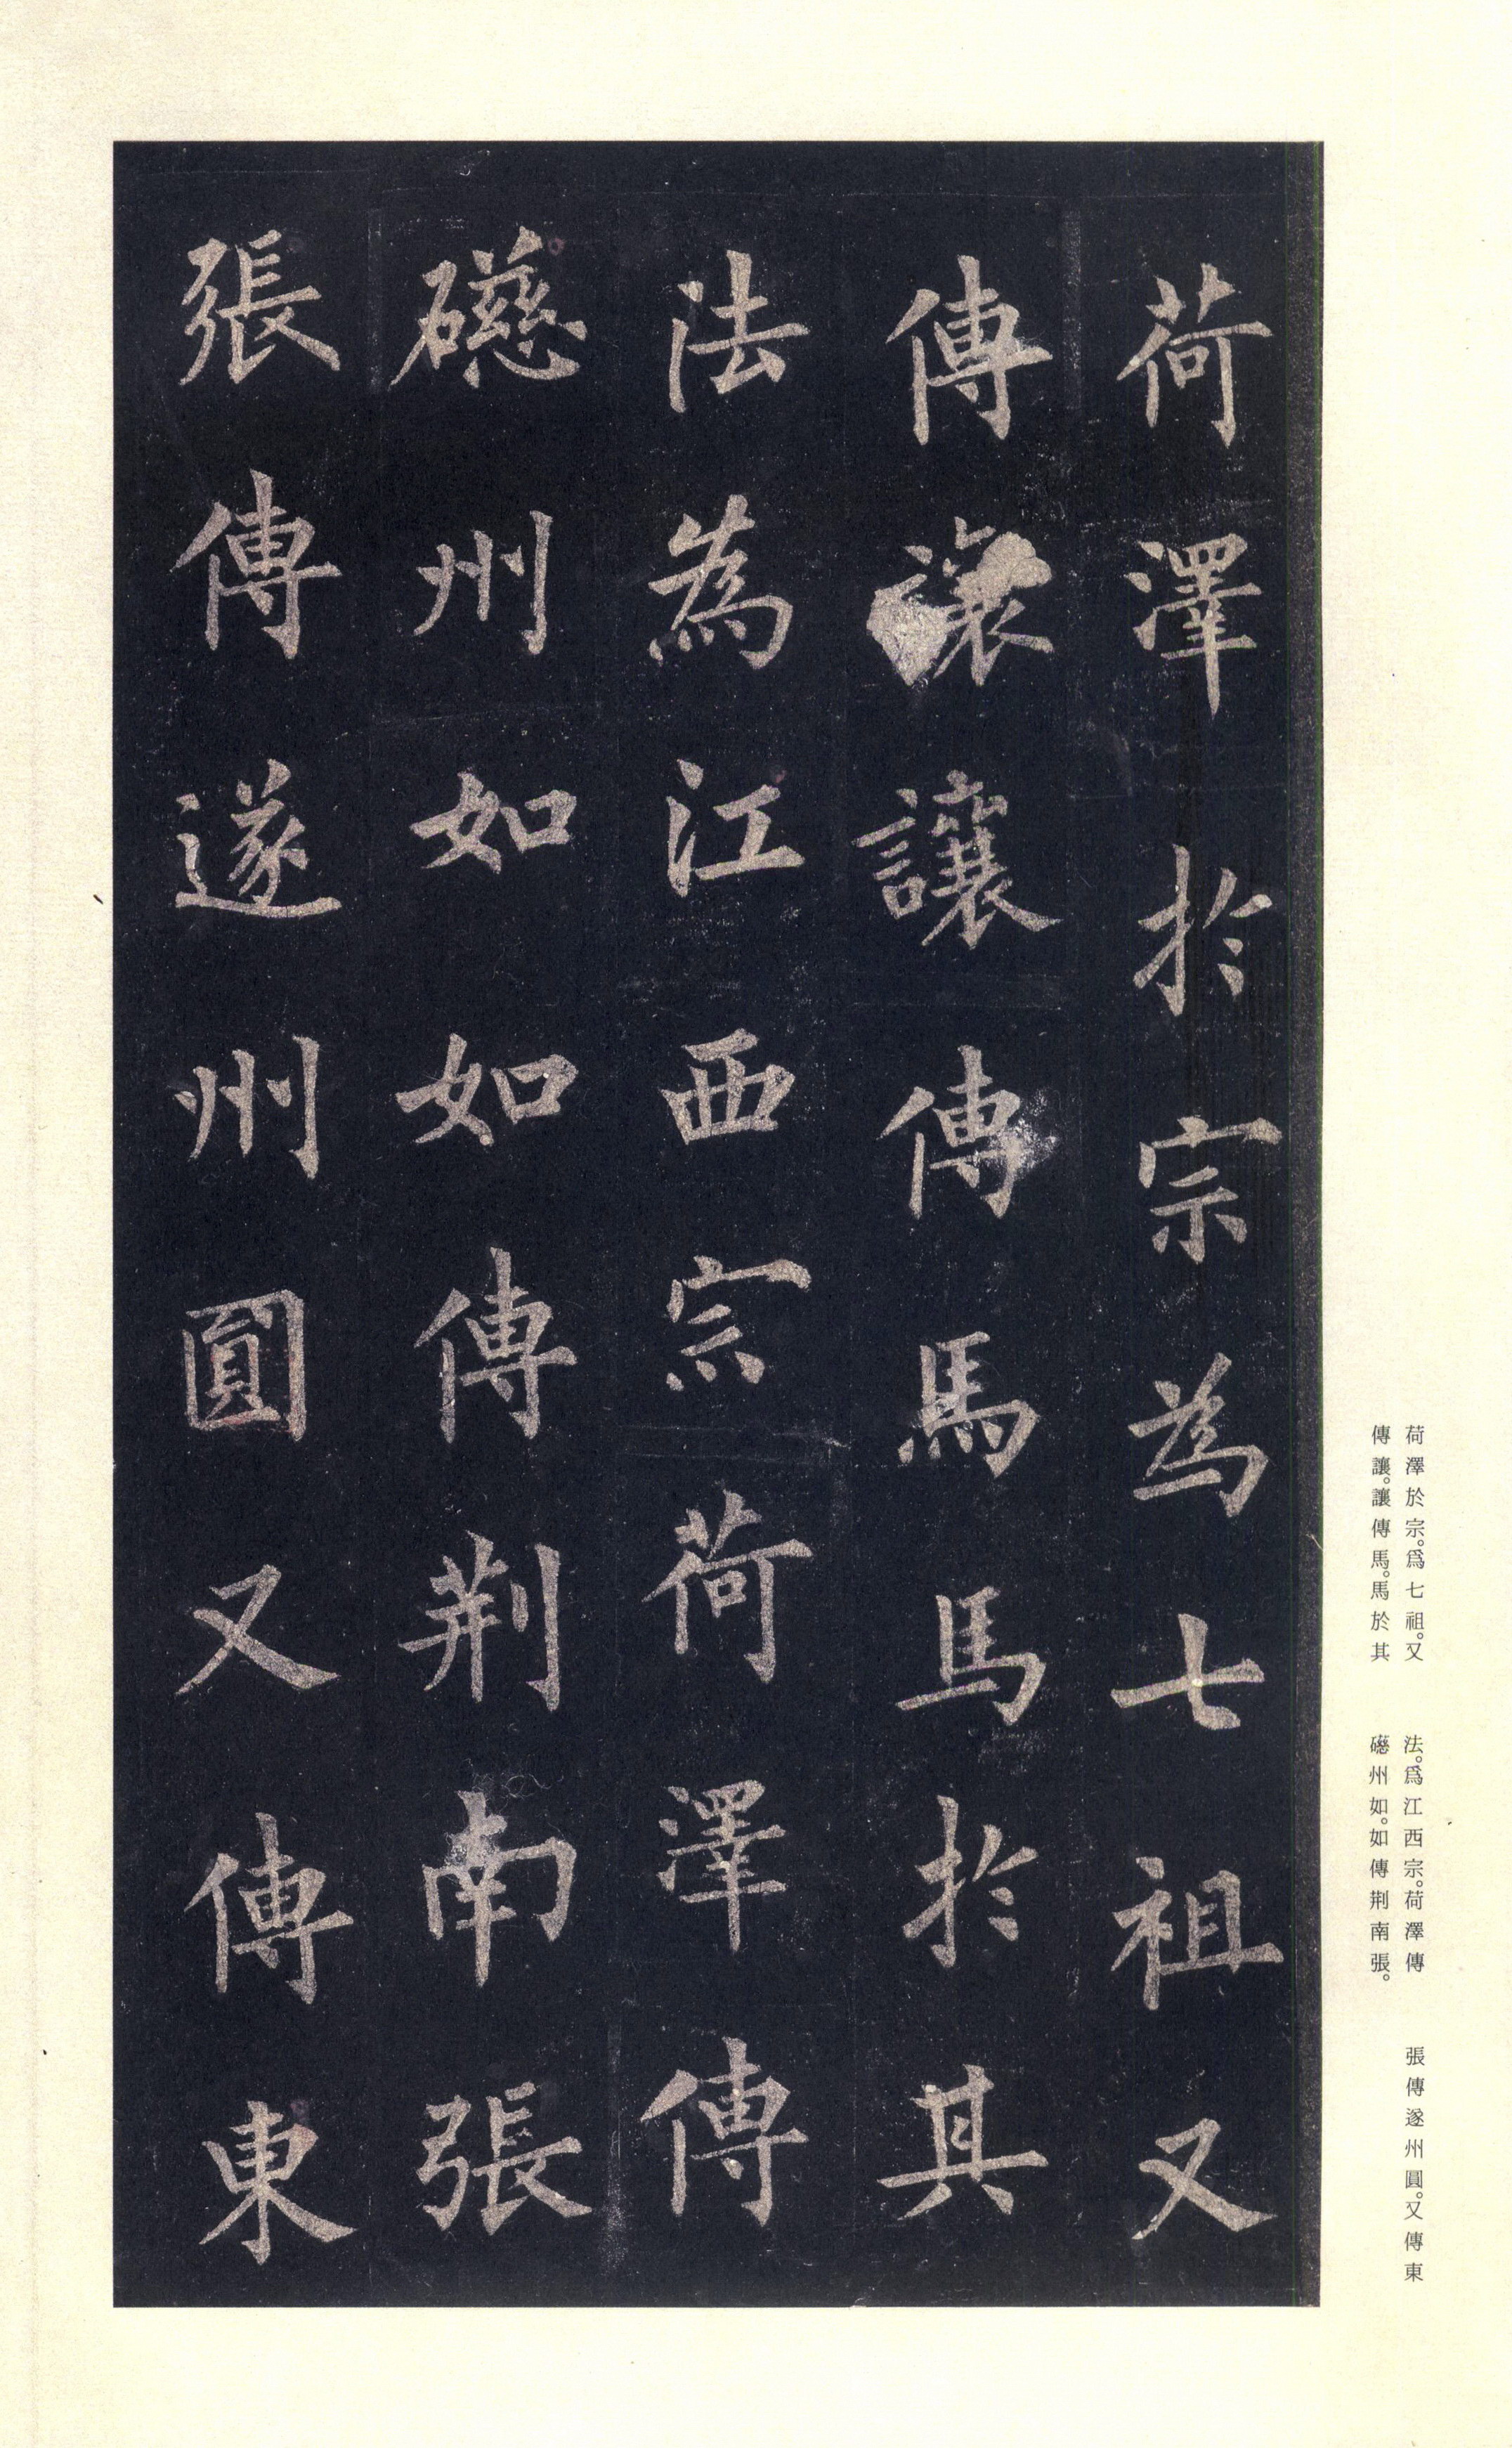 荷澤於宗為七祖又
傳讓讓傳馬馬於其
法為江西宗荷澤傳
礠州如如傳荆南張
張傳遂州圓又傳東
荷澤於宗。爲七祖。又
傳讓。讓傳馬。馬於其
法。爲江西宗。荷澤傳
礠州如。如傳荆南張。
張傳遂州圓。又傳東